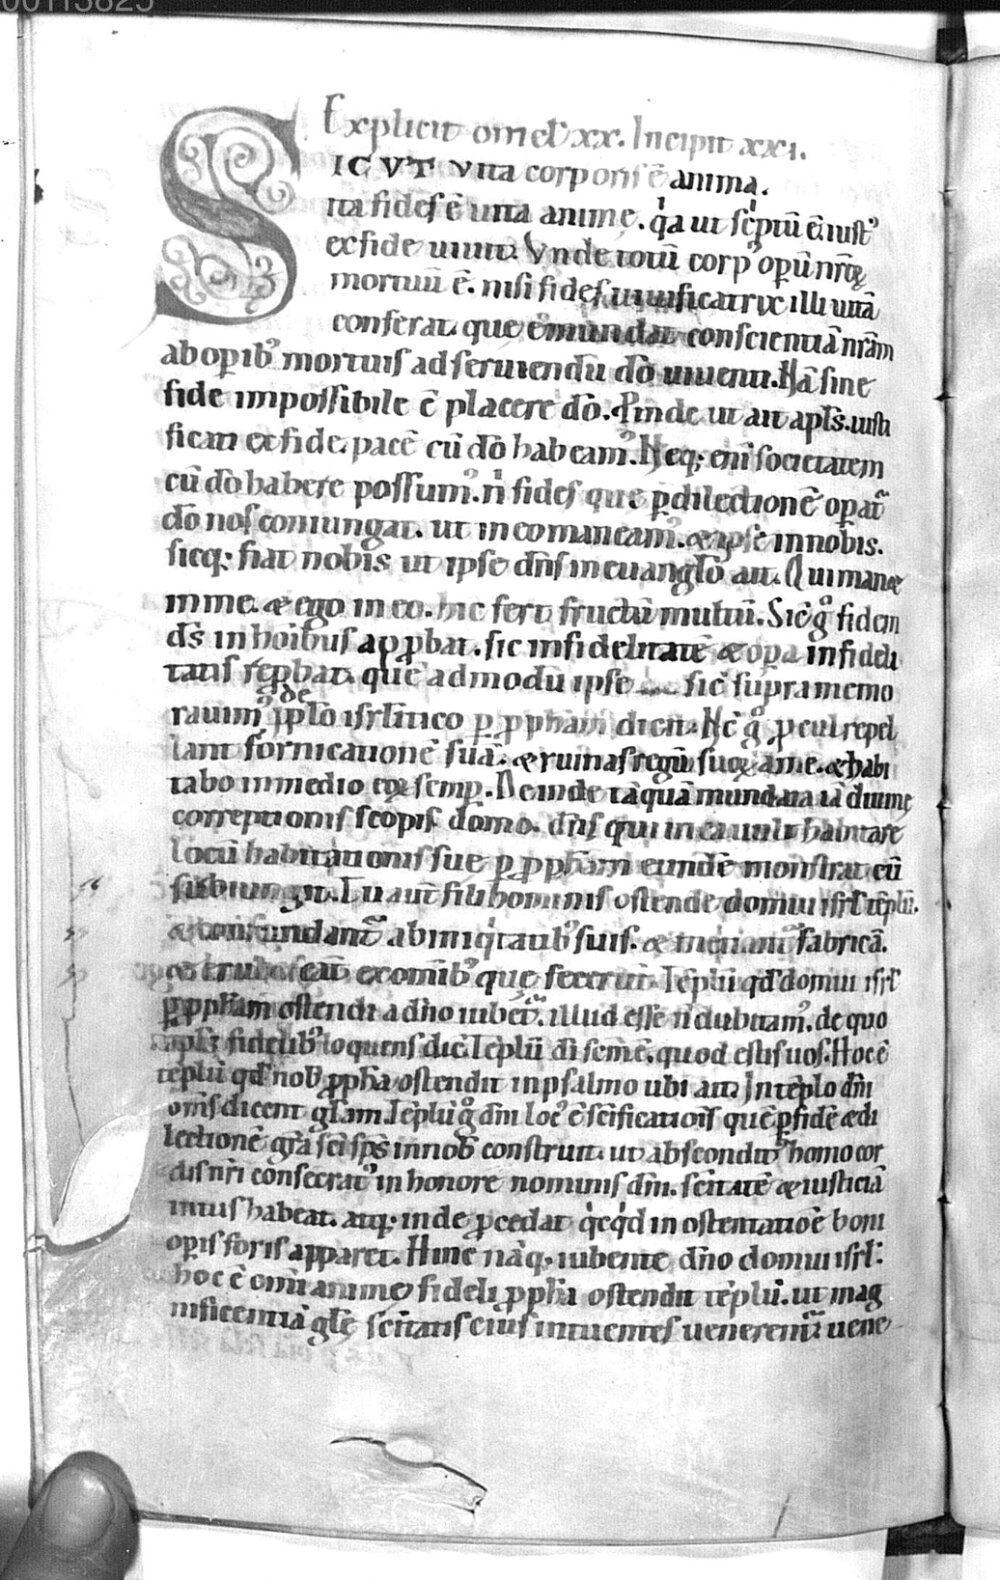 00113825
Explicit omel̄ xx. Incipit xxi.
SICVT vita corporis ē anima.
ita fides ē uita animę. q̇a ut sc̄ptū ē. iust᾽
ex fide uiuit. Vnde totū corp᾽ oꝑū nr̄oꝝ
mortuū ē. nisi fides uiuificatrix illi uitā
conferat. que emundat conscientiā nr̄am
ab oꝑib᾽ mortuis ad seruiendū dō uiuenti. Nā sine
fide impossibile ē placere dō. Proinde ut ait apl̄s. iusti
ficati ex fide. pacē cū dō habeam᾽. Neq; eni societatem
cū dō habere possum᾽. n̄ fides que ꝑ dilectionē oꝑat᷑
dō nos coniungat. ut in eo maneam᾽. & ipse in nobis.
sicq; fiat nobis ut ipse dn̄s in euanglō ait. Qui man&
in me. & ego in eo. hic fert fructū multū. Sic g̊ fidem
ds̄ in hoībus approbat. sic infidelitatē & oꝑa infideli
tatis reprobat. quē admodū ipse sic supra memo
rauim᾽ de ipłō isrl̄itico ꝑ pph̄am dicit. Nc̄ g̊ procul repel
lant fornicationē suā. & ruinas regū suoꝝ a me. & habi
tabo in medio eoꝝ semp. Deinde tāquā mundata iā diuinę
correptionis scopis domo. dn̄s qui in ea uult habitare
locū habitationis sue ꝑ pph̄am eundē monstrat cū
subiungit. Tu aut̄ fili hominis ostende domui isrl̄ tēplū.
& confundant᷑ ab iniq̇tatib᾽ suis. & metiant᷑ fabricā.
& erubescāt ex omib᾽ quę fecerūt. Tēplū qd̄ domui isrl̄
ꝑ pph̄am ostendi a dn̄o iubet᷑. illud esse n̄ dubitam᾽. de quo
apl̄s fidelib᾽ loquens dic̄. Tēplū dī sc̄m ē. quod estis uos. Hoc ē
tēplū qd̄ nob̄ pph̄a ostendit in psalmo ubi ait. In tēplo dn̄i
om̄s dicent gl̄am. Tēplū g̊ dn̄i loc᾽ ē sc̄ificatiōis que ꝑ fidē & di
lectionē grā sc̄i sp̄s in nob̄ construit. ut abscondit᾽ homo cor
dis nr̄i consecrat᾽ in honore nominis dn̄i. sc̄itatē & iusticiā
intus habeat. atq; inde procedat q̇cq̇d in ostentatiōe boni
oꝑis foris apparet. Hinc nāq; iubente dn̄o domui isrl̄.
hoc ē omi anime fideli pph̄a ostendit tēplū. ut mag
nificentiā glę sc̄itatis eius intuentes ueneremur uene